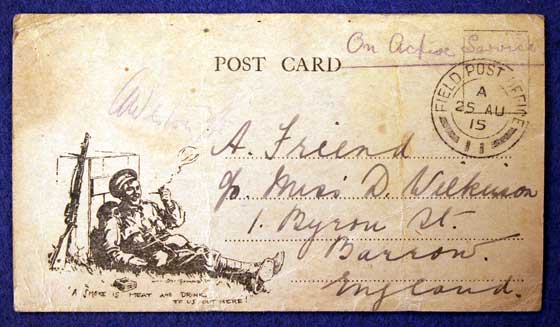 On Active Service
POST CARD
FIELD POST OFFICE
A
25 AU
15
A. Friend
c/o Miss D. Wilkinson
1. Byron St.
Barrow.
England.
"A SMOKE IS MEAT AND DRINK
TO US OUT HERE!"